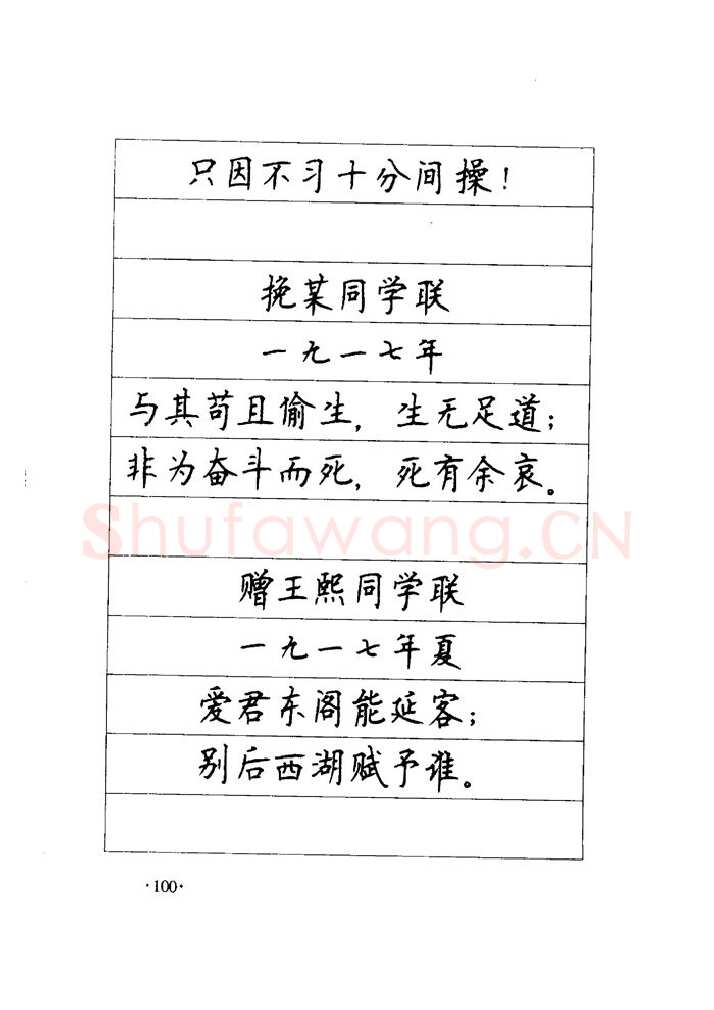 只因不习十分间操！
挽某同学联
一九一七年
与其苟且偷生，生无足道；
非为奋斗而死，死有余哀。
Shufawang.CN
赠王熙同学联
一九一七年夏
爱君东阁能延客；
别后西湖赋予谁。
·100·